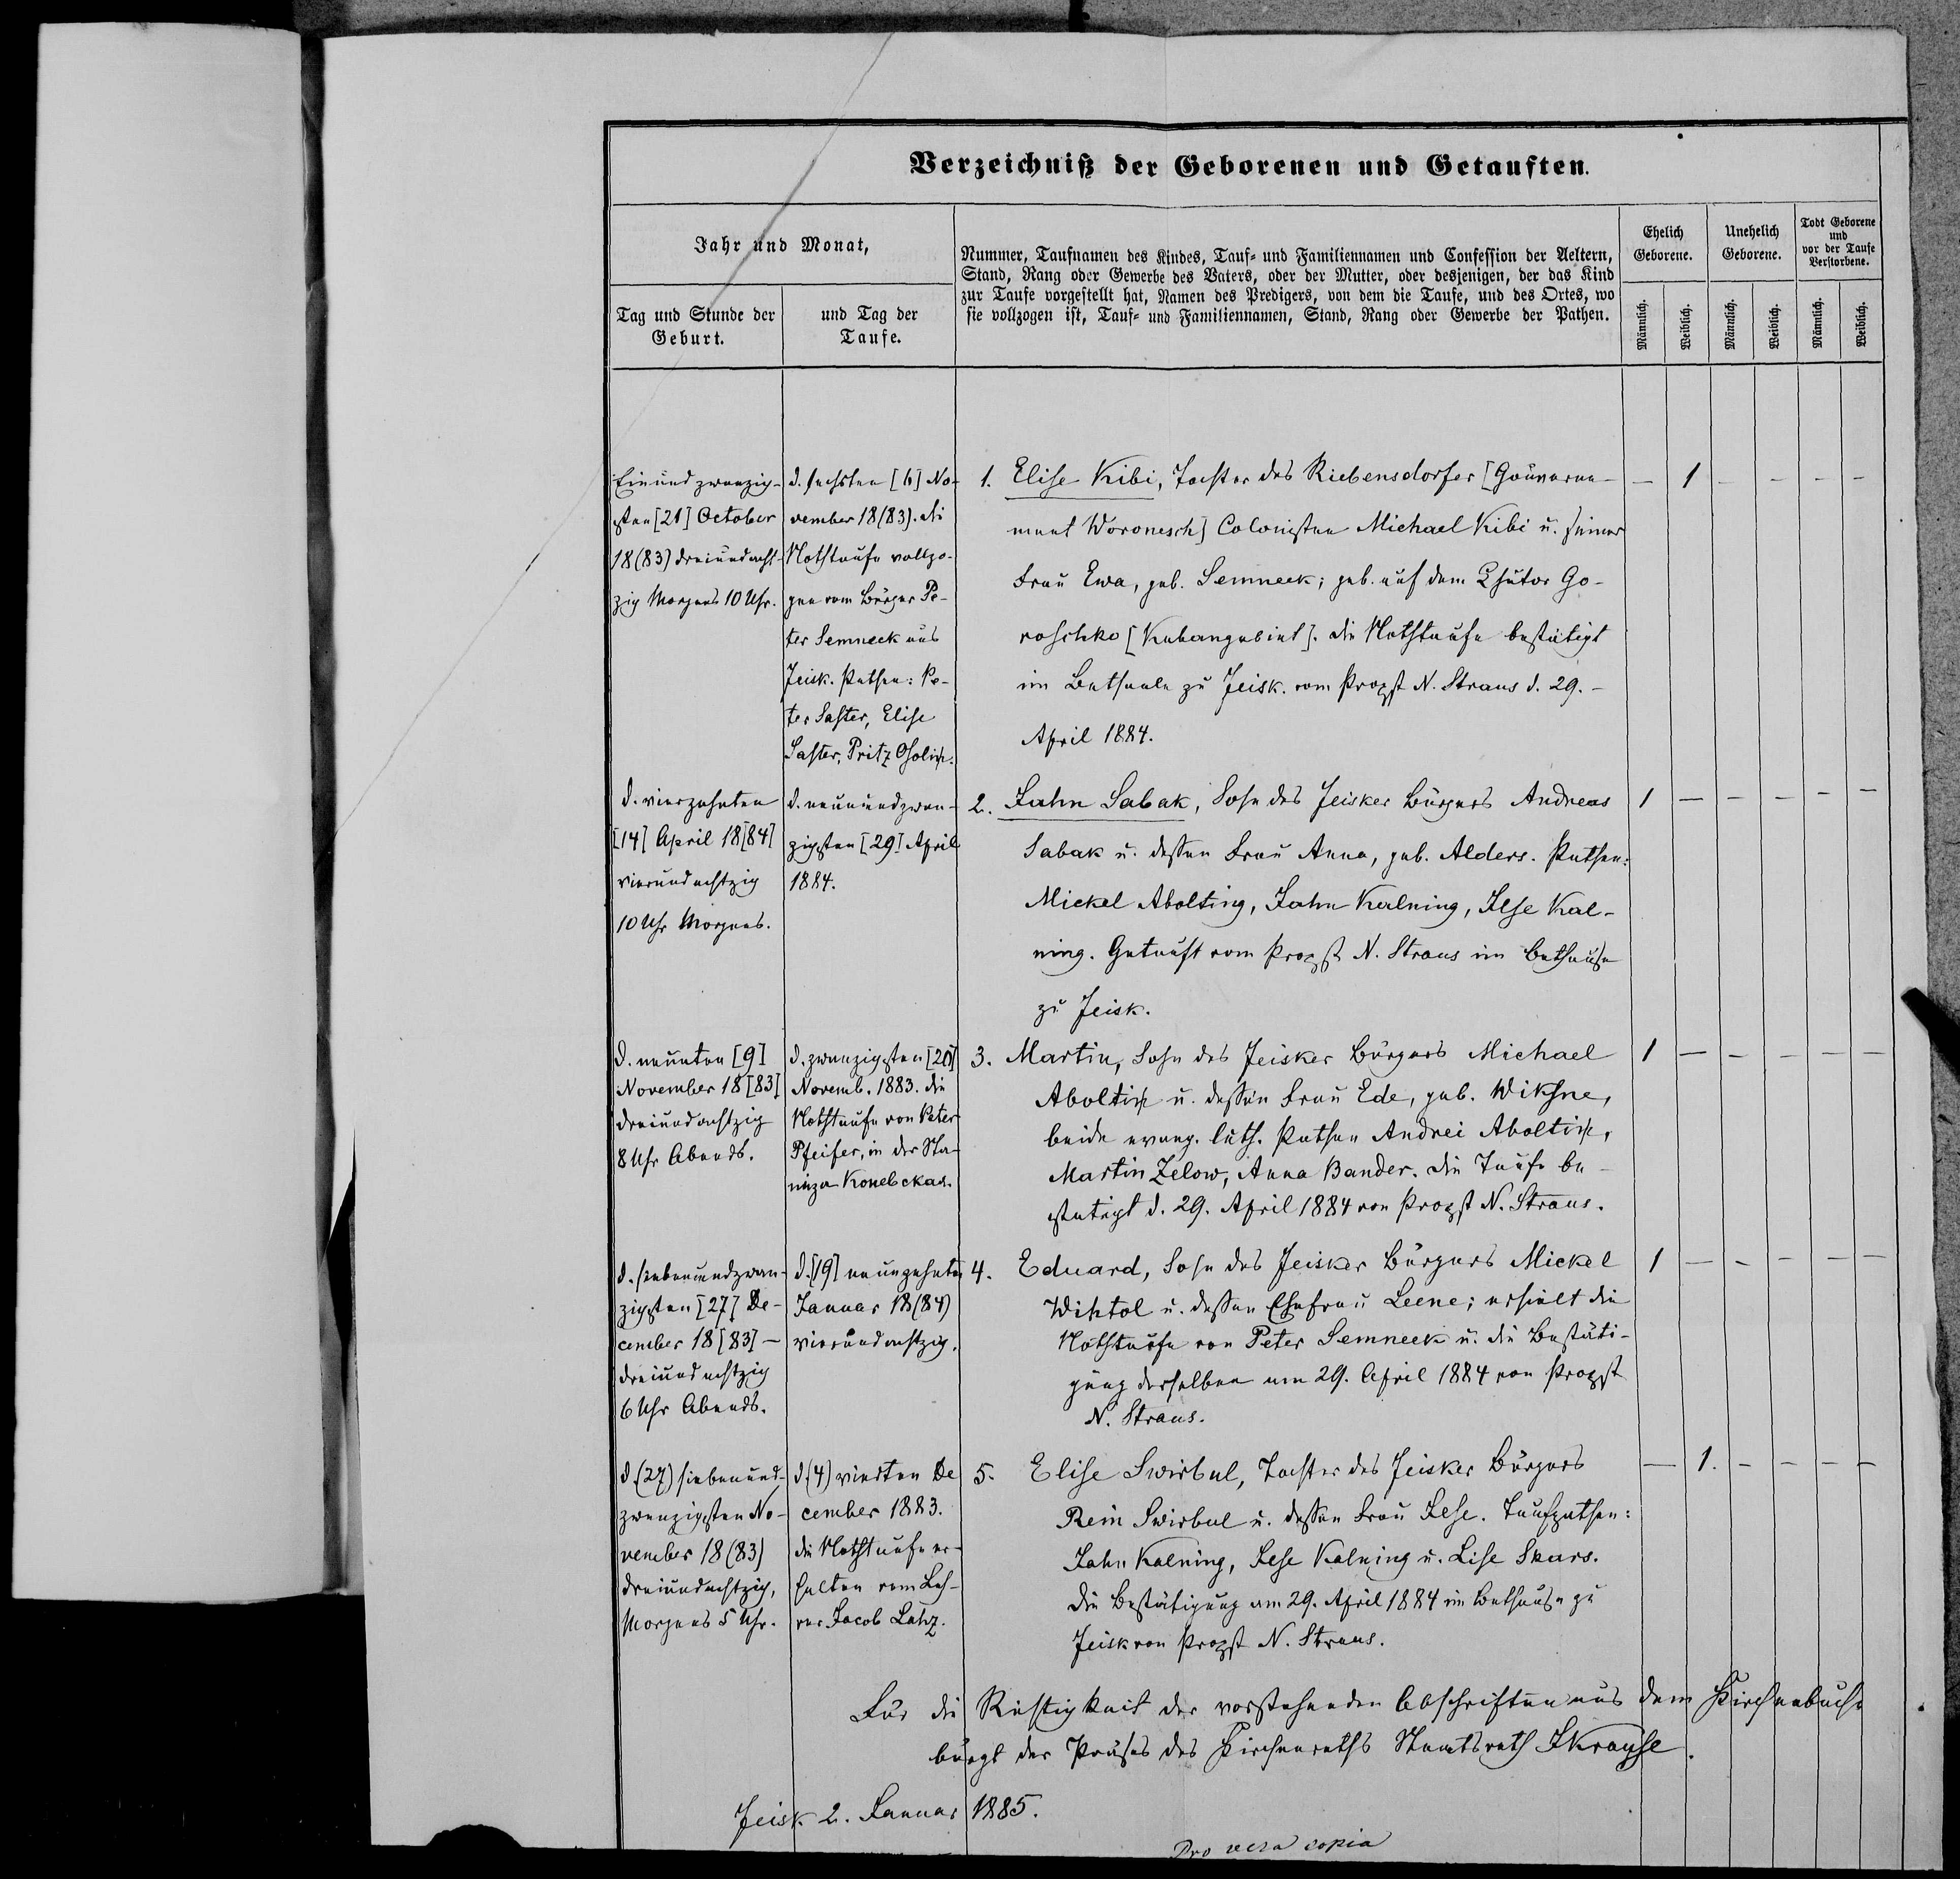 Verzeichniß der Geborenen und Getauften.
Jahr und Monat,
Tag und Stunde der
Geburt.
und Tag der
Taufe.
Nummer, Taufnamen des Kindes, Tauf- und Familiennamen und Confession der Aeltern,
Stand, Rang oder Gewerbe des Vaters, oder der Mutter, oder desjenigen, der das Kind
zur Taufe vorgestellt hat, Namen des Predigers, von dem die Taufe, und des Ortes, wo
sie vollzogen ist, Tauf- und Familiennamen, Stand, Rang oder Gewerbe der Pathen.
Ehelich
Geborene.
Unehelich
Geborene.
Todt Geborene
und
vor der Taufe
Verstorbene.
Männlich.
Weiblich.
Männlich.
Weiblich.
Männlich.
Weiblich.
Einundzwanzig-
sten [21] October
18(83) dreiundacht-
zig Morgens 10 Uhr.
d. sechsten [6] No-
vember 18(83). die
Nothtaufe vollzo-
gen vom Bürger Pe-
ter Semneek aus
Jeisk. Pathen: Pe-
ter Saster, Elise
Saster, Pritz Osolin.
1. Elise Kibi, Tochter des Riebensdorfer [Gouverne-
ment Woronesch] Colonisten Michael Kibi u. seiner
Frau Ewa, geb. Semneek; geb. auf dem Chutor Go-
roschko [Kubangebiet]. Die Nothtaufe bestätigt
im Bethsaale zu Jeisk. vom Propst N. Straus d. 29.-
April 1884.
— 1 — — — —
d. vierzehnten
[14] April 18[84]
vierundachtzig
10 Uhr Morgens.
d. neunundzwan-
zigsten [29] April
1884.
2. Jahn Sabak, Sohn des Jeisker Bürgers Andreas
Sabak u. dessen Frau Anna, geb. Alders. Pathen:
Mickel Abolting, Jahn Kalning, Ilse Kal-
ning. Getauft vom Propst N. Straus im Bethause
zu Jeisk.
1 — — — — —
d. neunten [9]
November 18[83]
dreiundachtzig
8 Uhr Abends.
d. zwanzigsten [20]
Novemb. 1883. die
Nothtaufe von Peter
Pfeifer, in der Sta-
niza Konelskaя.
3. Martin, Sohn des Jeisker Bürgers Michael
Aboltin u. dessen Frau Ede, geb. Wiksne,
beide evang. luth. Pathen Andrei Aboltin,
Martin Zelow, Anna Bander. Die Taufe be-
stätigt d. 29. April 1884 von Propst N. Straus.
1 — — — — —
d. siebenundzwan-
zigsten [27] De-
cember 18[83] —
dreiundachtzig
6 Uhr Abends.
d. [19] neunzehnten
Januar 18(84)
vierundachtzig.
4. Eduard, Sohn des Jeisker Bürgers Mickel
Wihtol u. dessen Ehefrau Leene; erhielt die
Nothtaufe von Peter Semneek u. die Bestäti-
gung derselben am 29. April 1884 von Propst
N. Straus.
1 — — — — —
d (27) siebenund-
zwanzigsten No-
vember 18(83)
dreiundachtzig,
Morgens 5 Uhr.
d (4) vierten De
cember 1883.
die Nothtaufe er-
halten vom Leh-
rer Jacob Lahz.
5. Elise Swirbul, Tochter des Jeisker Bürgers
Rein Swirbul u. dessen Frau Ilse. Taufpathen:
Jahn Kalning, Ilse Kalning u. Lise Skars.
Die Bestätigung am 29. April 1884 im Bethause zu
Jeisk von Propst N. Straus.
— 1. — — — —
Für die Richtigkeit der vorstehenden Abschriften aus dem Kirchenbuche
bürgt der Präses des Kirchenraths Staatsrath JKrause.
Jeisk 2. Januar 1885.
Pro vera copia